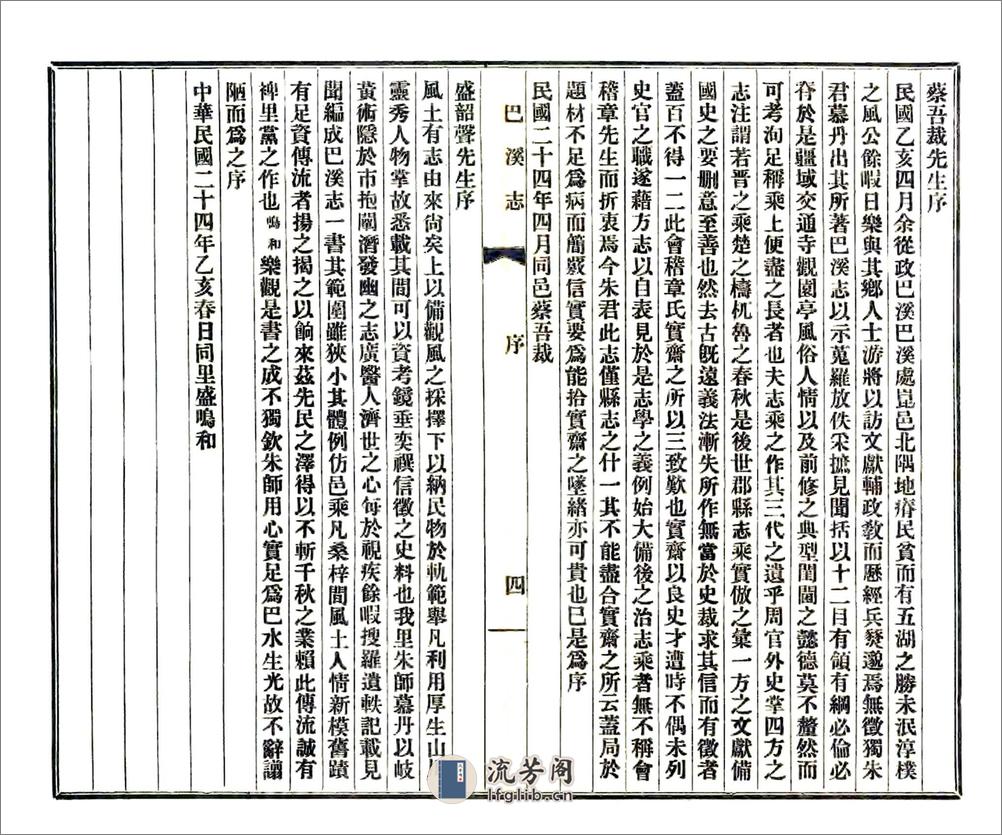 蔡吾裁先生序
民國乙亥四月余從政巴溪巴溪處崑邑北隅地瘠民貧而有五湖之勝未泯淳樸
之風公餘暇日樂與其鄉人士游將以訪文獻輔政敎而歷經兵燹邈焉無徵獨朱
君慕丹出其所著巴溪志以示蒐羅放佚采摭見聞括以十二目有領有綱必倫必
脊於是疆域交通寺觀園亭風俗人情以及前修之典型閨閫之懿德莫不釐然而
可考洵足稱乘上便盡之長者也夫志乘之作其三代之遺乎周官外史掌四方之
志注謂若晋之乘楚之檮杌魯之春秋是後世郡縣志乘實倣之彙一方之文獻備
國史之要删意至善也然去古旣遠義法漸失所作無當於史裁求其信而有徵者
蓋百不得一二此會稽章氏實齋之所以三致歎也實齋以良史才遭時不偶未列
史官之職遂藉方志以自表見於是志學之義例始大備後之治志乘者無不稱會
稽章先生而折衷焉今朱君此志僅縣志之什一其不能盡合實齋之所云蓋局於
題材不足爲病而簡嚴信實要爲能拾實齋之墜緒亦可貴也已是爲序
民國二十四年四月同邑蔡吾裁
巴溪志
序
四
盛韶聲先生序
風土有志由來尚矣上以備觀風之採擇下以納民物於軌範舉凡利用厚生山
靈秀人物掌故悉載其間可以資考鏡垂奕禩信徵之史料也我里朱師慕丹以岐
黃術隱於市抱闡潛發幽之志廣醫人濟世之心每於視疾餘暇搜羅遺軼記載見
聞編成巴溪志一書其範圍雖狹小其體例仿邑乘凡桑梓間風土人情新模舊蹟
有足資傳流者揚之揭之以餉來茲先民之澤得以不斬千秋之業賴此傳流誠有
裨里黨之作也鳴和樂觀是書之成不獨欽朱師用心實足爲巴水生光故不辭譾
陋而爲之序
中華民國二十四年乙亥春日同里盛鳴和
流芳阁
lfglib.cn